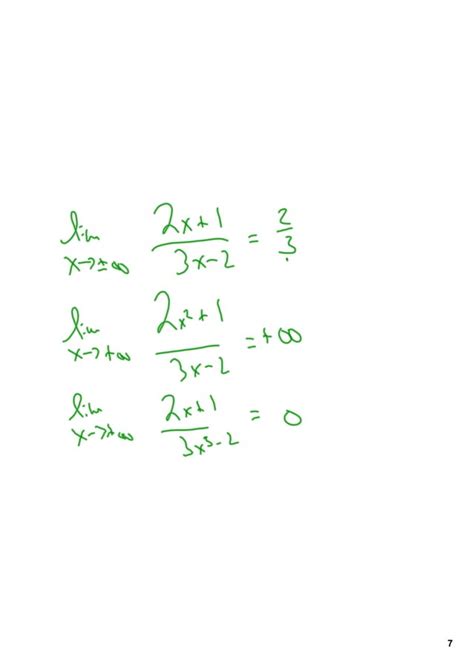 lim x→±∞ (2x+1)/(3x-2) = 2/3
lim x→+∞ (2x²+1)/(3x-2) = +∞
lim x→+∞ (2x+1)/(3x³-2) = 0
7